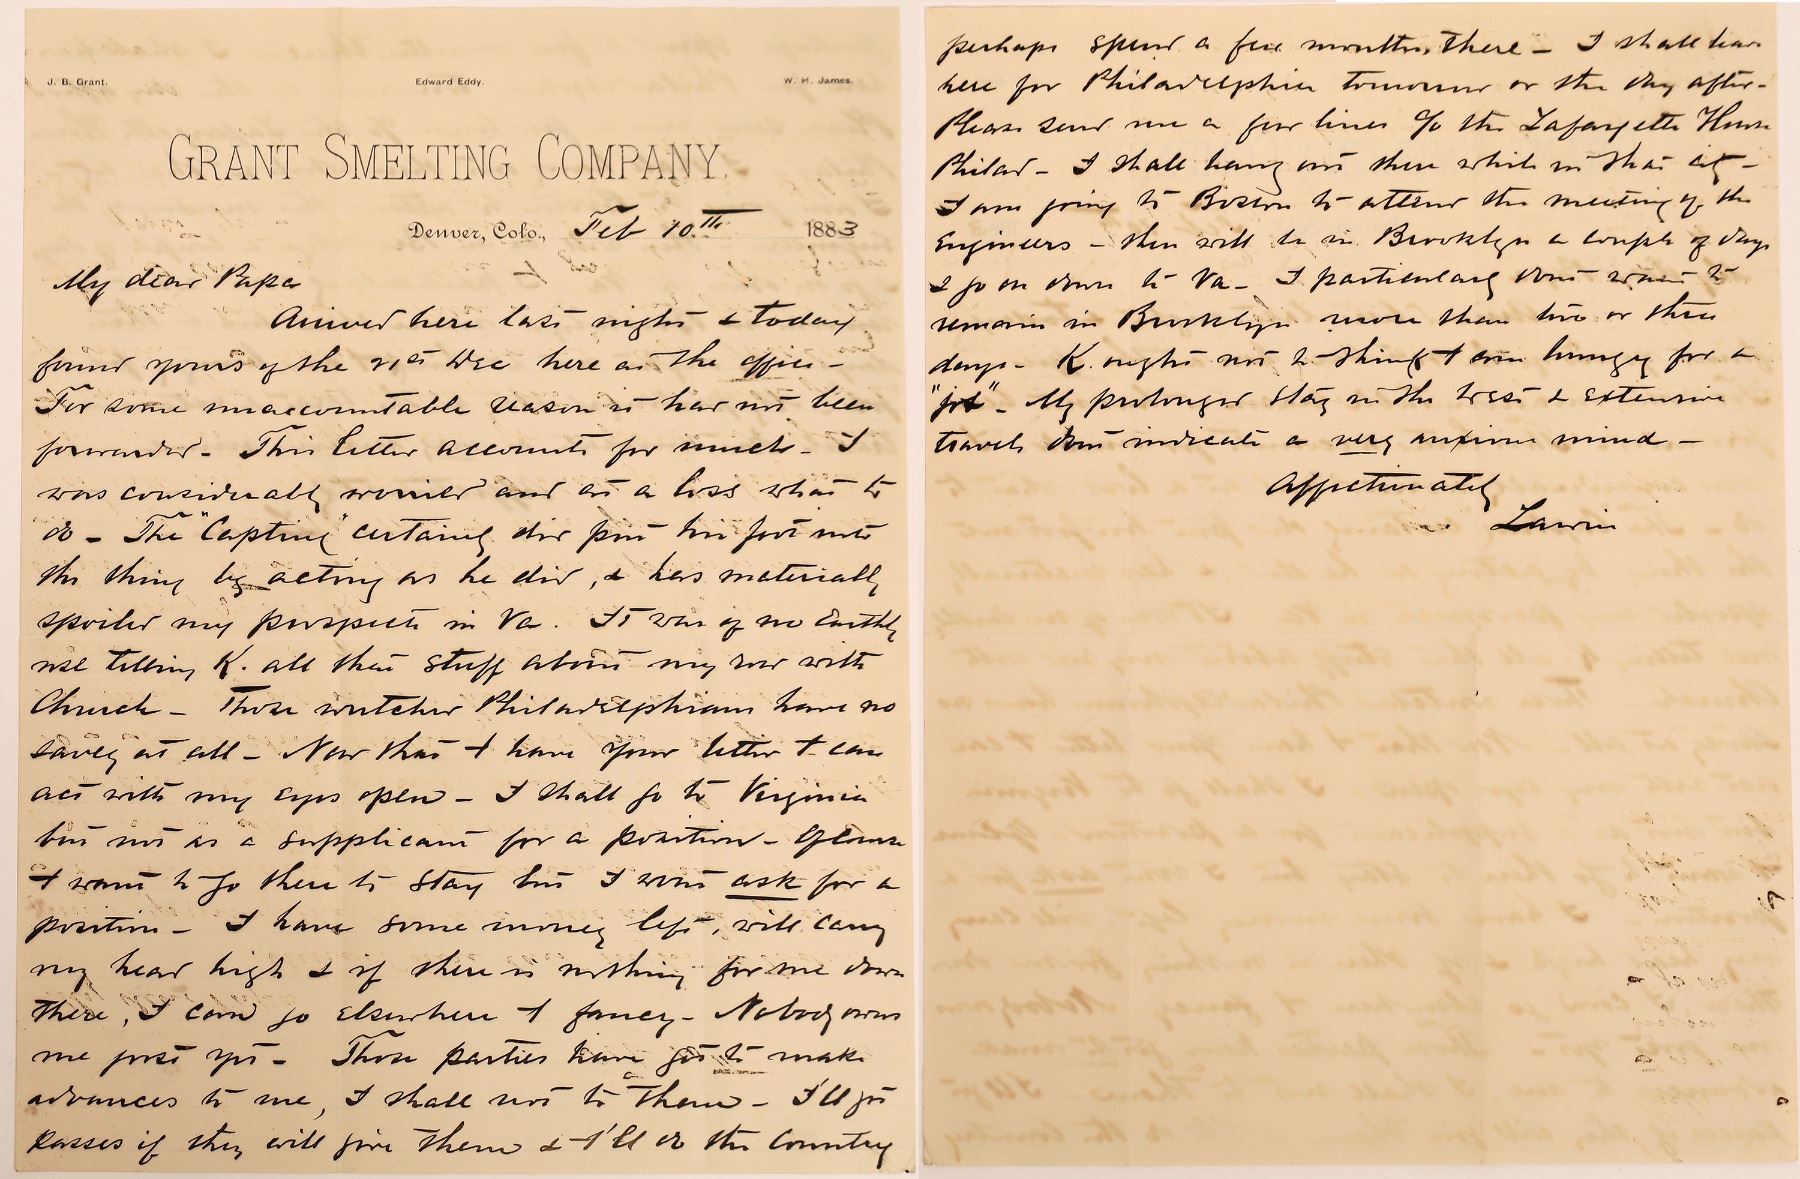 J. B. Grant. Edward Eddy. W. H. James.
GRANT SMELTING COMPANY.
Denver, Colo., Feb 10th 1883
My dear Papa
Arrived here last night & today
found yours of the 21st Dec here at the office –
For some unaccountable reason it had not been
forwarded – This letter accounts for much – I
was considerably worried and at a loss what to
do – The "Capting" certainly did put his foot into
the thing by acting as he did, & has materially
spoiled my prospects in Va. It was of no earthly
use telling K. all that stuff about my row with
Church – Those wretched Philadelphians have no
savey at all – Now that I have your letter I can
act with my eyes open – I shall go to Virginia
but not as a supplicant for a position – Of course
I want to go there to stay but I wont ask for a
position – I have some money left, will carry
my head high & if there is nothing for me down
there, I can go elsewhere I fancy – Nobody owns
me just yet – Those parties have got to make
advances to me, I shall not to them – I'll get
passes if they will give them & I'll do the country
perhaps spend a few months there – I shall leave
here for Philadelphia tomorrow or the day after –
Please send me a few lines c/o the Lafayette House
Philad – I shall hang out there while in that city –
I am going to Boston to attend the meeting of the
Engineers – then will be in Brooklyn a couple of days
& go on down to Va – I particularly dont want to
remain in Brooklyn more than two or three
days – K. ought not to think I am hungry for a
"job" – My prolonged stay in the West & extensive
travels dont indicate a very anxious mind –
Affectionately